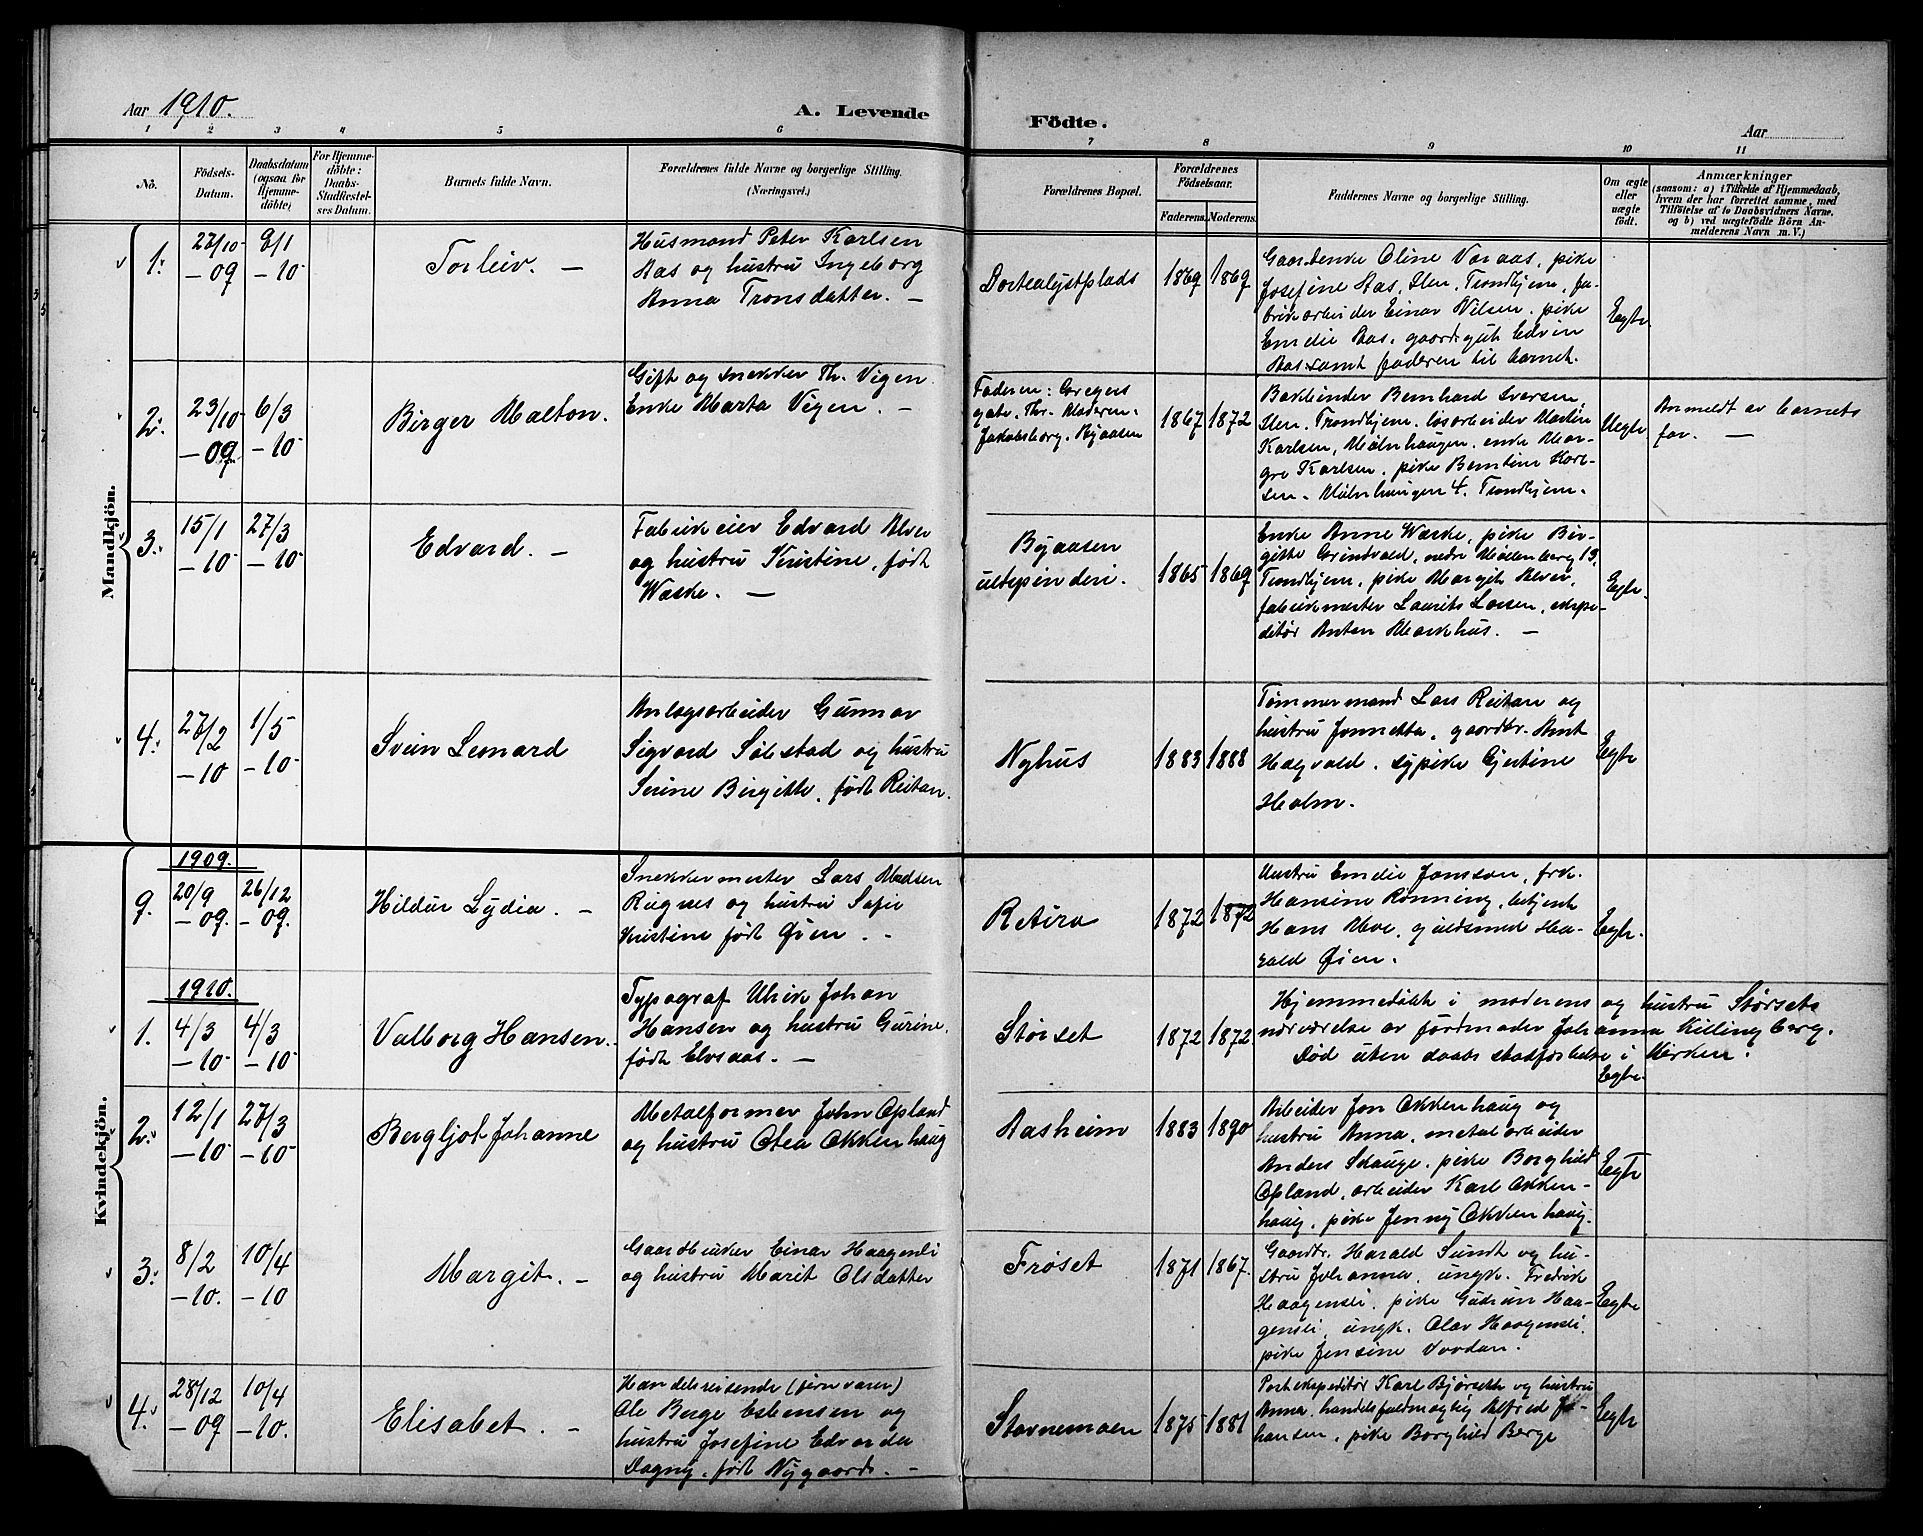 Aar 1910.
A. Levende Födte.
Aar
1 2 3 4 5 6 7 8 9 10 11
No.
Födsels-Datum.
Daabsdatum (ogsaa for Hjemmedöbte)
For Hjemmedöbte: Daabs-Stadfæstelses Datum.
Barnets fulde Navn.
Forældrenes fulde Navne og borgerlige Stilling.
(Næringsvei.)
Forældrenes Bopæl.
Forældrenes Födselsaar.
Faderens. Moderens.
Faddernes Navne og borgerlige Stilling.
Om ægte eller uægte födt.
Anmærkninger
(saasom: a) i Tilfælde af Hjemmedaab,
hvem der har forrettet samme, med
Tilföielse af to Daabsvidners Navne,
og b) ved uægtefödte Börn Anmelderens Navn m. V.)
Mandkjön.
1.
27/10 -09
9/1 -10
Torleiv. —
Husmand Peter Karlsen
Aas og hustru Ingeborg
Anna Tronsdatter. —
Dortealystplads
1869 1869
Gaardenke Oline Varaas, pike
Josefine Aas, Ilen, Trondhjem, fa-
brikarbeider Einar Nilsen, pike
Emelie Aas, gaardsgut Edvin
Aas samt faderen til barnet.
Egte
2.
23/10 -09
6/3 -10
Birger Malton.
Gift og snekker Th. Vigen
Enke Marta Vigen. —
Faderen: Gregers
gate, Thr. Moderen:
Jakobsborg, Byaasen
1867 1872
Bokbinder Bernhard Iversen,
Ilen, Trondhjem, løsarbeider Martin
Karlsen, Mølnhaugen, enke Mar-
gre Karlsen, pike Berntine Karl-
sen, Mølnhaugen 4, Trondhjem.
Uegte
Anmeldt av barnets
far. —
3.
15/1 -10
27/3 -10
Edvard. —
Fabrikeier Edvard Alver
og hustru Kristine, født
Waske. —
Byaasen
uldspinderi.
1865 1869
Enke Anne Waske, pike Bir-
gitte Grindvold, nedre Møllenberg 13,
Trondhjem, pike Margit Alver,
fabrikmester Laurits Larsen, ekspe-
ditør Anton Markhus. —
Egte
4.
27/2 -10
1/5 -10
Svein Leonard
Anlægsarbeider Gunnar
Sigvard Sølstad og hustru
Serine Birgitte, født Reitan.
Nyhus
1883 1888
Tømmermand Lars Reitan og
hustru Jonnetta, gaardbr. Arnt
Hagvald, sypike Gjertine
Holm.
Egte
Kvindekjön.
1909.
9.
20/9 -09.
26/12 -09.
Hildur Lydia. —
Snekkermester Lars Madsen
Rignes og hustru Sofie
Kristine født Øien. -
Retiro
1872 1872
Hustru Emelie Jonsson, frk.
Hansine Rønning, betjent
Hans Moe, guldsmed Ha-
rald Øien.
Egte.
1910.
1.
4/3 -10
4/3 -10
Valborg Hansen.
Typograf Ulrik Johan
Hansen og hustru Gurine,
født Elvsaas. —
Størset
1872 1872
Hjemmedøbt i moderens og hustru Størsets
nærværelse av jordmoder Johanna Killingberg.
Død uten daabsstadfæstelse i kirken.
Egte.
2.
12/1 -10
27/3 -10
Bergljot Johanne
Metalformer John Opland
og hustru Otea Okkenhaug
Aasheim
1883 1890
Arbeider Jon Okkenhaug og
hustru Anna, metalarbeider
Anders Skauge, pike Borghild
Opland, arbeider Karl Okken-
haug, pike Jenny Okkenhaug.
Egte
3.
8/2 -10.
10/4 -10
Margit. —
Gaardbruker Einar Haagensli
og hustru Marit Olsdatter
Frøset
1871 1867.
Gaardbr. Harald Sundt og hu-
stru Johanna, ungk. Fredrik
Haagensli, pike Gudrun Haa-
gensli, ungk. Olav Haagensli,
pike Jensine Vordan.
Egte
4.
28/12 -09
10/4 -10.
Elisabet. —
Handelsreisende (jernvarer)
Ole Berge Esbensen og
hustru Josefine Edvarda
Dagny, født Nygaard. —
Stavnemoen
1875 1881
Postekspeditør Karl Bjørseth og hustru
Anna, handelsfuldmægtig Alfred Jo-
hansen, pike Borghild Berge
Egte